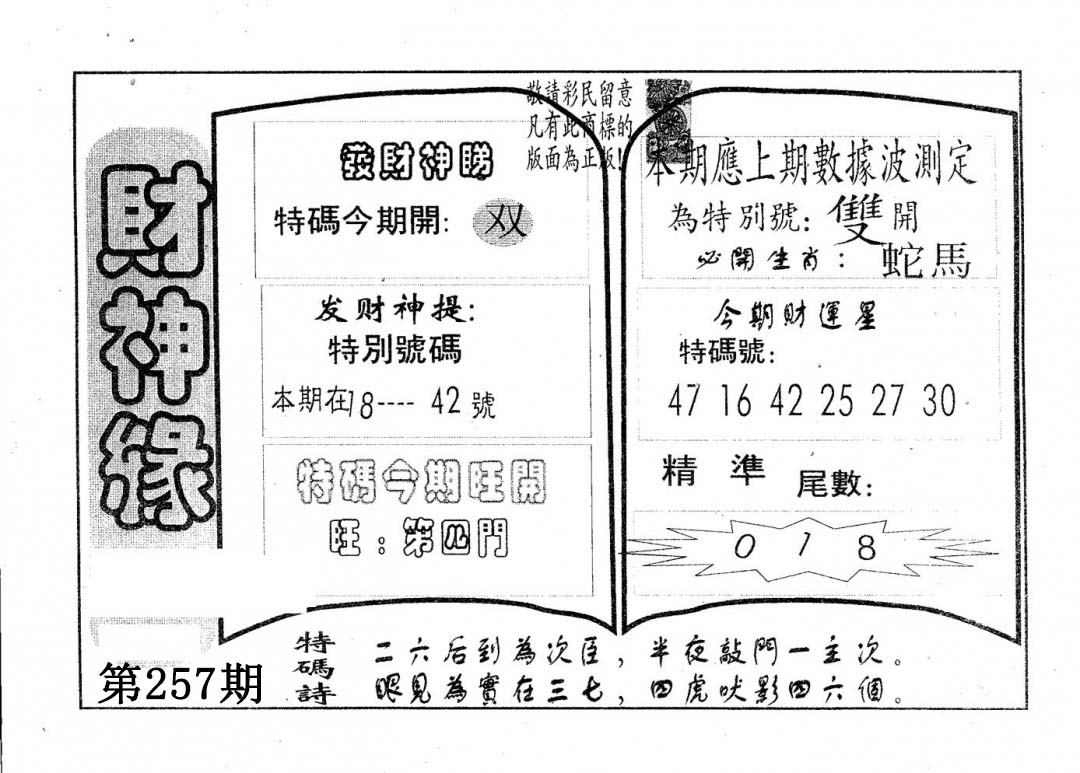 敬請彩民留意
凡有此商標的
版面為正版!
財神緣
發財神睇
特碼今期開: 双
发财神提:
特別號碼
本期在18---- 42號
特碼今期旺開
旺:第四門
本期應上期數據波測定
為特別號:雙開
必開生肖:蛇馬
今期財運星
特碼號:
47 16 42 25 27 30
精準 尾數:
0 1 8
特碼詩
二六后到為次臣,半夜敲門一主次。
眼見為實在三七,四虎吠影四六個。
第257期